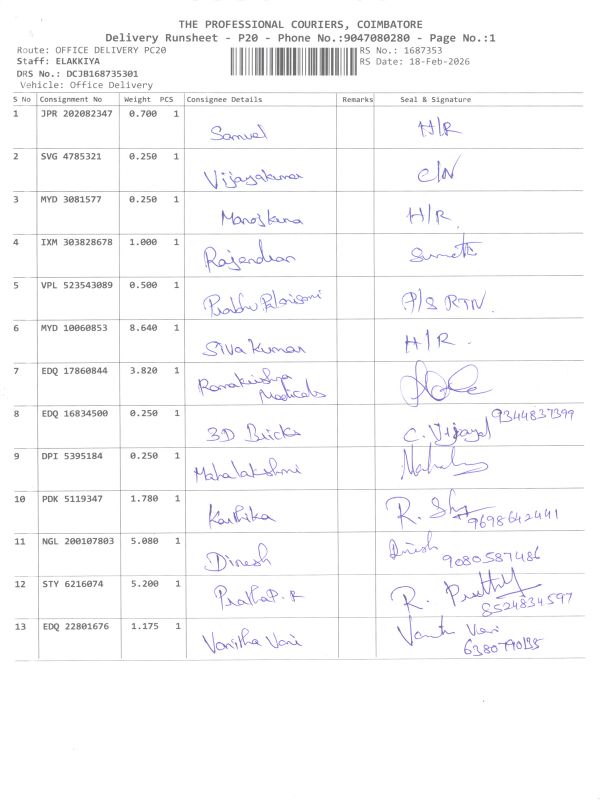 THE PROFESSIONAL COURIERS, COIMBATORE
Delivery Runsheet - P20 - Phone No.:9047080280 - Page No.:1
Route: OFFICE DELIVERY PC20 RS No.: 1687353
Staff: ELAKKIYA RS Date: 18-Feb-2026
DRS No.: DCJB168735301
Vehicle: Office Delivery
S No Consignment No Weight PCS Consignee Details Remarks Seal & Signature
1 JPR 202082347 0.700 1 Samuel H/R
2 SVG 4785321 0.250 1 Vijayakumar C/N
3 MYD 3081577 0.250 1 H/R
4 IXM 303828678 1.000 1 Rajendran
5 VPL 523543089 0.500 1 Prabhu P/S RTN.
6 MYD 10060853 8.640 1 Siva Kumar H/R.
7 EDQ 17860844 3.820 1 Ramakrishna
Medicals
8 EDQ 16834500 0.250 1 3D Bricks C. Vijayal 9344837399
9 DPI 5395184 0.250 1 Mahalakshmi
10 PDK 5119347 1.780 1 Karthika R. 9698642441
11 NGL 200107803 5.080 1 Dinesh Dinesh
9080587486
12 STY 6216074 5.200 1 R.
8524834597
13 EDQ 22801676 1.175 1 Vanitha Vani
6380790135